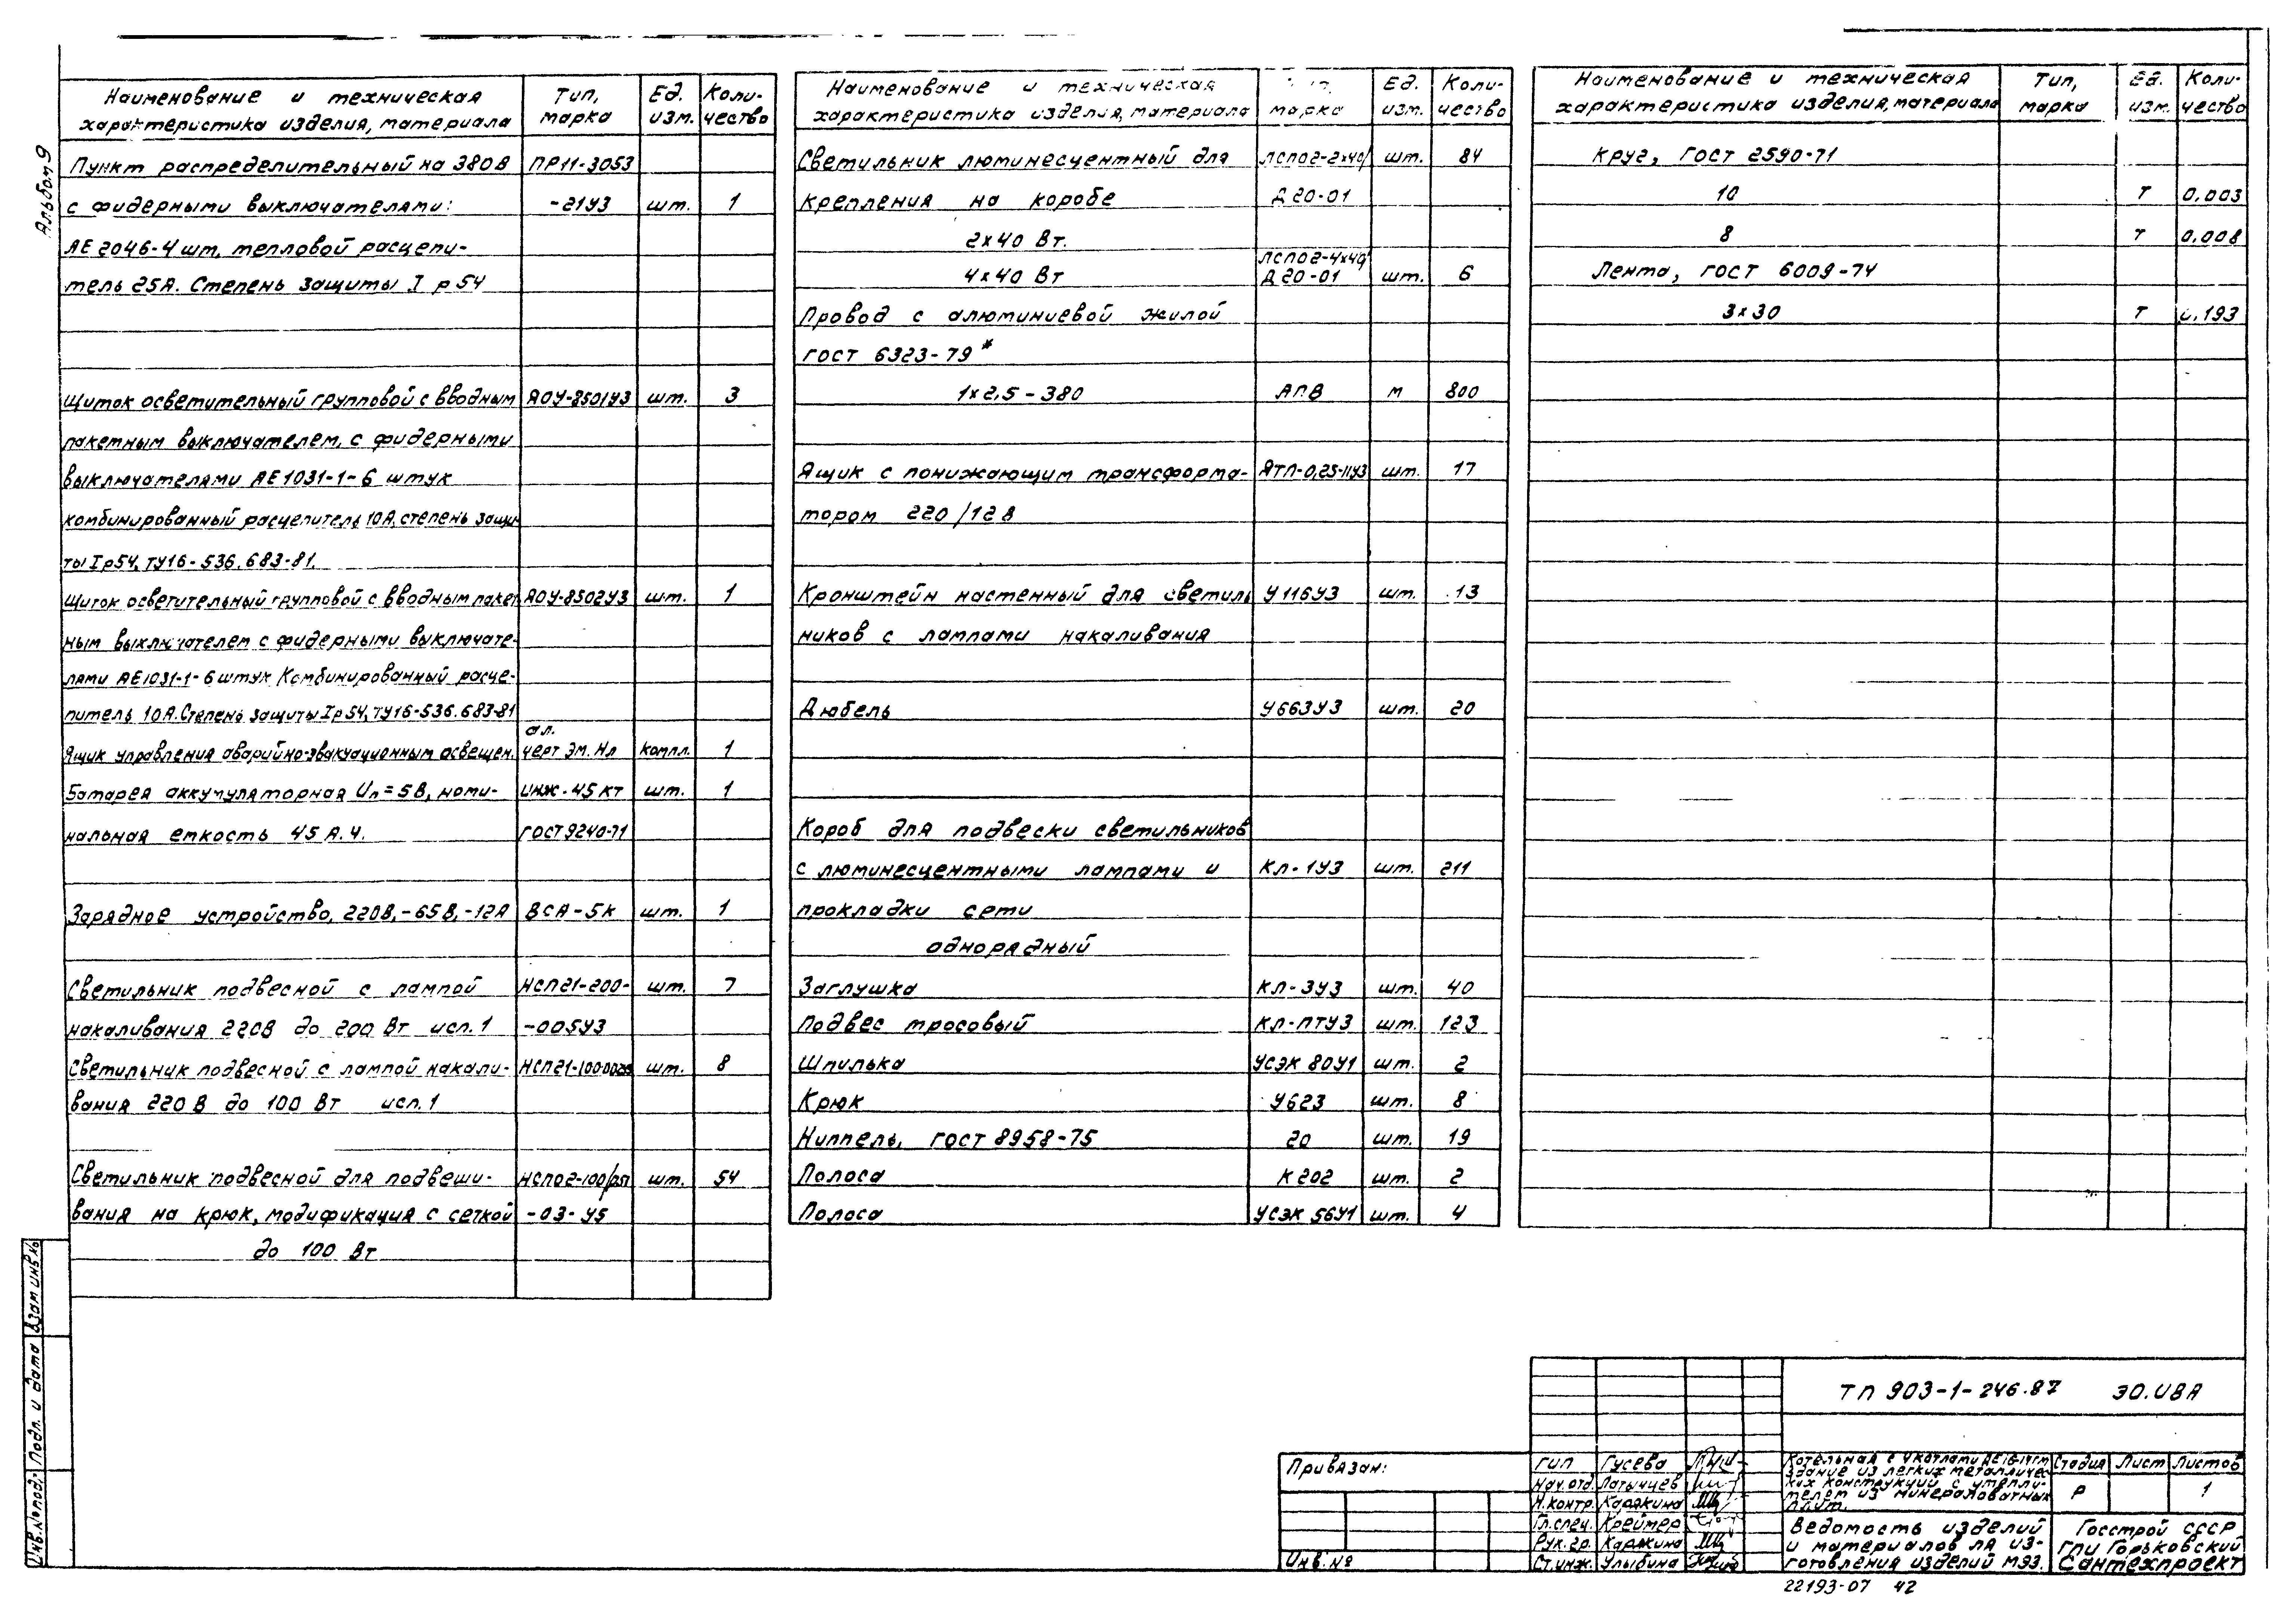 Альбом 9
Наименование и техническая характеристика изделия, материала | Тип, марка | Ед. изм. | Количество
Пункт распределительный на 380 В | ПР11-3053
с фидерными выключателями: | -21У3 | шт. | 1
АЕ 2046-4 шт, тепловой расцепи-
тель 25А. Степень защиты I р 54
Щиток осветительный групповой с вводным | ЯОУ-8501У3 | шт. | 3
пакетным выключателем, с фидерными
выключателями АЕ 1031-1-6 штук
комбинированный расцепитель 10А, степень защи
ты I р54, ТУ16-536.683-81.
Щиток осветительный групповой с вводным пакет | ЯОУ-8502У3 | шт. | 1
ным выключателем с фидерными выключате-
лями АЕ1031-1-6 штук Комбинированный расце-
питель 10А. Степень защиты Iр54, ТУ16-536.683-81
ал.
Ящик управления аварийно-эвакуационным освещен. | черт ЭМ. НЛ | компл. | 1
Батарея аккумуляторная Uн=5В, номи- | ШНЖ-45 КТ | шт. | 1
нальная емкость 45 А.ч. | ГОСТ 9240-71
Зарядное устройство, 220В, -65В, -12А | ВСА-5К | шт. | 1
Светильник подвесной с лампой | НСП21-200- | шт. | 7
накаливания 220В до 200 Вт исп. 1 | -005У3
Светильник подвесной с лампой накали- | шт. | 8
вания 220 В до 100 Вт исп. 1
Светильник подвесной для подвеши- | шт. | 54
вания на крюк, модификация с сеткой | -03-У5
до 100 Вт
Наименование и техническая характеристика изделия, материала | марка | Ед. изм. | Количество
Светильник люминесцентный для | ЛСП02-2х40/ | шт. | 84
крепления на коробе | Д20-01
2х40 Вт.
ЛСП02-4х40/
4х40 Вт | Д20-01 | шт. | 6
Провод с алюминиевой жилой
ГОСТ 6323-79*
1х2,5-380 | АПВ | м | 800
Ящик с понижающим трансформа- | ЯТП-0,25-11У3 | шт. | 17
тором 220/12 В
Кронштейн настенный для светиль | У116У3 | шт. | 13
ников с лампами накаливания
Дюбель | У663У3 | шт. | 20
Короб для подвески светильников
с люминесцентными лампами и | КЛ-1У3 | шт. | 211
прокладки сети
однорядный
Заглушка | КЛ-3У3 | шт. | 40
Подвес тросовый | КЛ-ПТУ3 | шт. | 123
Шпилька | УСЭК 80У1 | шт. | 2
Крюк | У623 | шт. | 8
Ниппель, ГОСТ 8958-75 | 20 | шт. | 19
Полоса | К202 | шт. | 2
Полоса | УСЭК 56У1 | шт. | 4
Наименование и техническая характеристика изделия, материала | Тип, марка | Ед. изм. | Количество
Круг, ГОСТ 2590-71
10 | Т | 0,003
8 | Т | 0,008
Лента, ГОСТ 6009-74
3х30 | Т | 0,193
Инв.№подл. | Подп. и дата | Взам инв.№
Привязан:
Инв.№
ТП 903-1-246.87 ЭО.ИВА
ГИП | Гусева
Нач.отд. | Латынцев
Н.контр. | Карякина
Гл.спец. | Креймер
Рук.гр. | Карякина
Ст.инж. | Улыбина
Котельная с 4 котлами ДЕ16-14ГМ
Здание из легких металличес-
ких конструкций с утепли-
телем из минераловатных
плит.
Стадия | Лист | Листов
Р | 1
Ведомость изделий
и материалов для из-
готовления изделий МЭЗ.
Госстрой СССР
ГПИ Горьковский
Сантехпроект
22193-07 42